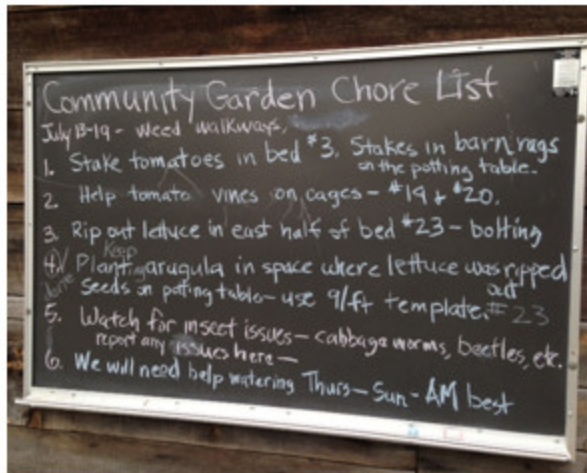 Community Garden Chore List
July 13-19 - Weed walkways,
1. Stake tomatoes in bed #3. Stakes in barn, rags
on the potting table.
2. Help tomato vines on cages - #19 + #20.
3. Rip out lettuce in east half of bed #23 - bolting
Keep
4. Plant arugula in space where lettuce was ripped
out
Seeds on potting table - use 9/ft template. #23
5. Watch for insect issues - cabbage worms, beetles, etc.
report any issues here -
6. We will need help watering Thurs - Sun - AM best